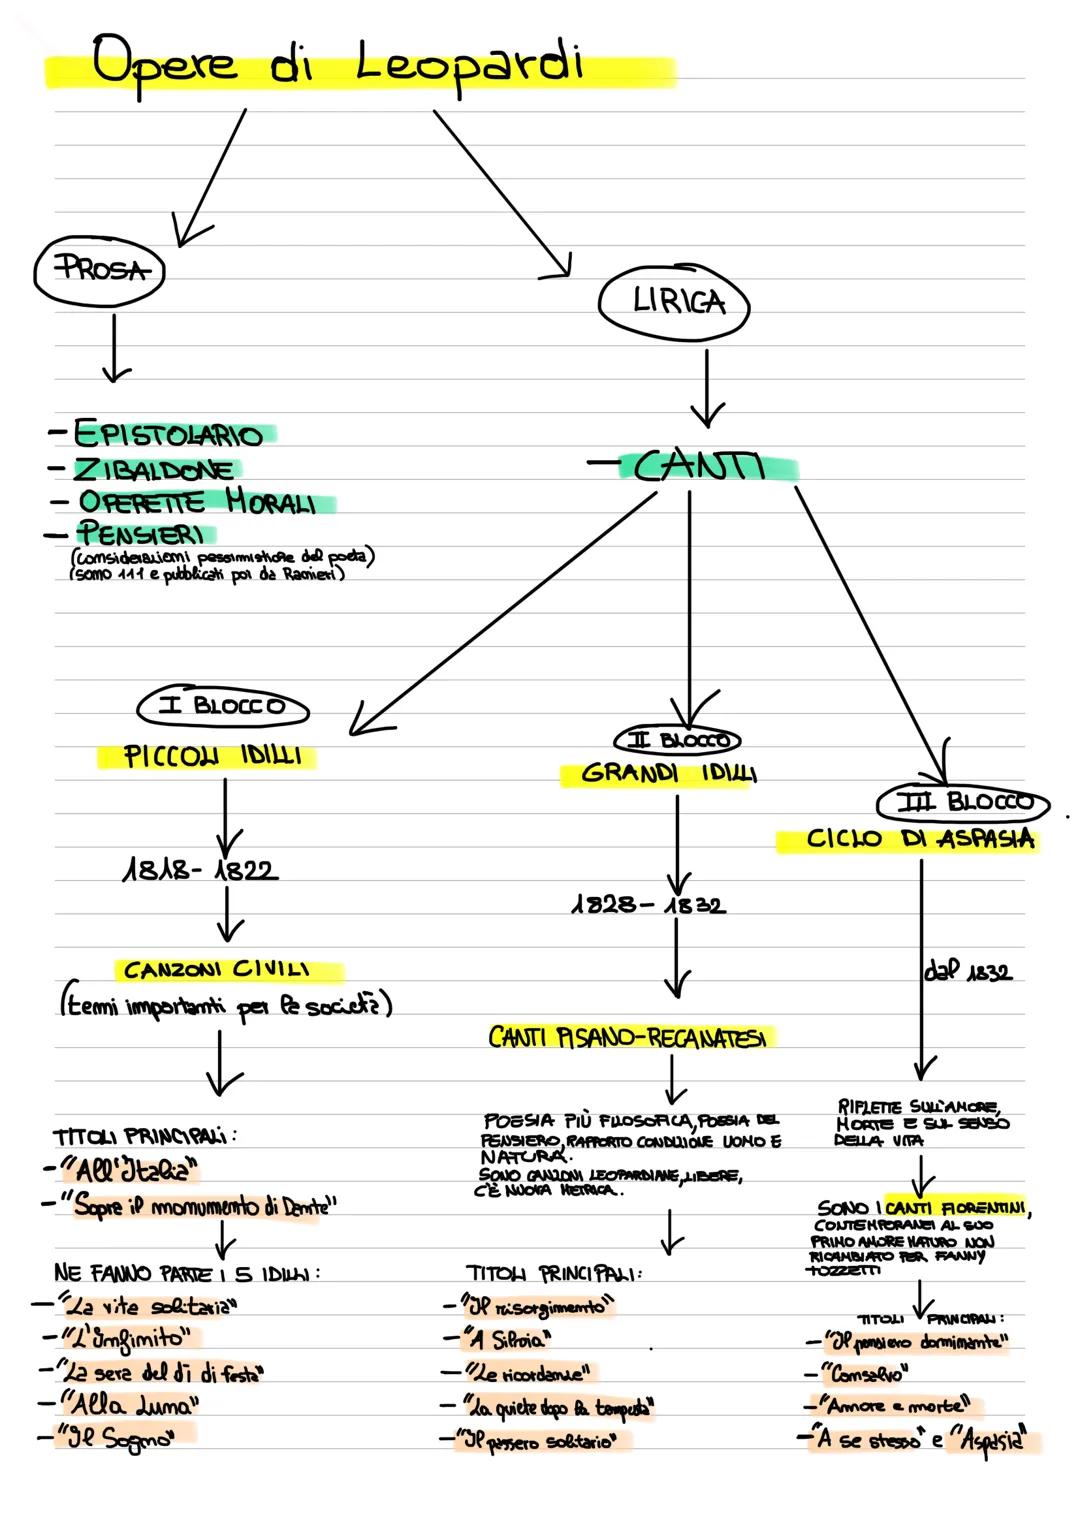 Opere di Leopardi
PROSA
LIRICA
- EPISTOLARIO
- ZIBALDONE
- OPERETTE MORALI
- PENSIERI
(considerazioni pessimistiche del poeta)
(sono 111 e pubblicati poi da Ranieri)
- CANTI
I BLOCCO
PICCOLI IDILLI
1818- 1822
CANZONI CIVILI
(temi importanti per la società)
TITOLI PRINCIPALI:
-"All'Italia"
-"Sopra il monumento di Dante"
NE FANNO PARTE I 5 IDILLI:
-"La vita solitaria"
-"L'Infinito"
-"La sera del dì di festa"
-"Alla Luna"
-"Il Sogno"
II BLOCCO
GRANDI IDILLI
1828- 1832
CANTI PISANO-RECANATESI
POESIA PIÙ FILOSOFICA, POESIA DEL
PENSIERO, RAPPORTO CONDIZIONE UOMO E
NATURA.
SONO CANZONI LEOPARDIANE, LIBERE,
C'È NUOVA METRICA.
TITOLI PRINCIPALI:
-"Il risorgimento"
-"A Silvia"
-"Le ricordanze"
-"La quiete dopo la tempesta"
-"Il passero solitario"
III BLOCCO
CICLO DI ASPASIA
dal 1832
RIFLETTE SULL'AMORE,
MORTE E SUL SENSO
DELLA VITA
SONO I CANTI FIORENTINI,
CONTEMPORANEI AL SUO
PRIMO AMORE MATURO NON
RICAMBIATO PER FANNY
TOZZETTI
TITOLI PRINCIPALI:
-"Il pensiero dominante"
-"Consalvo"
-"Amore e morte"
-"A se stesso" e "Aspasia"